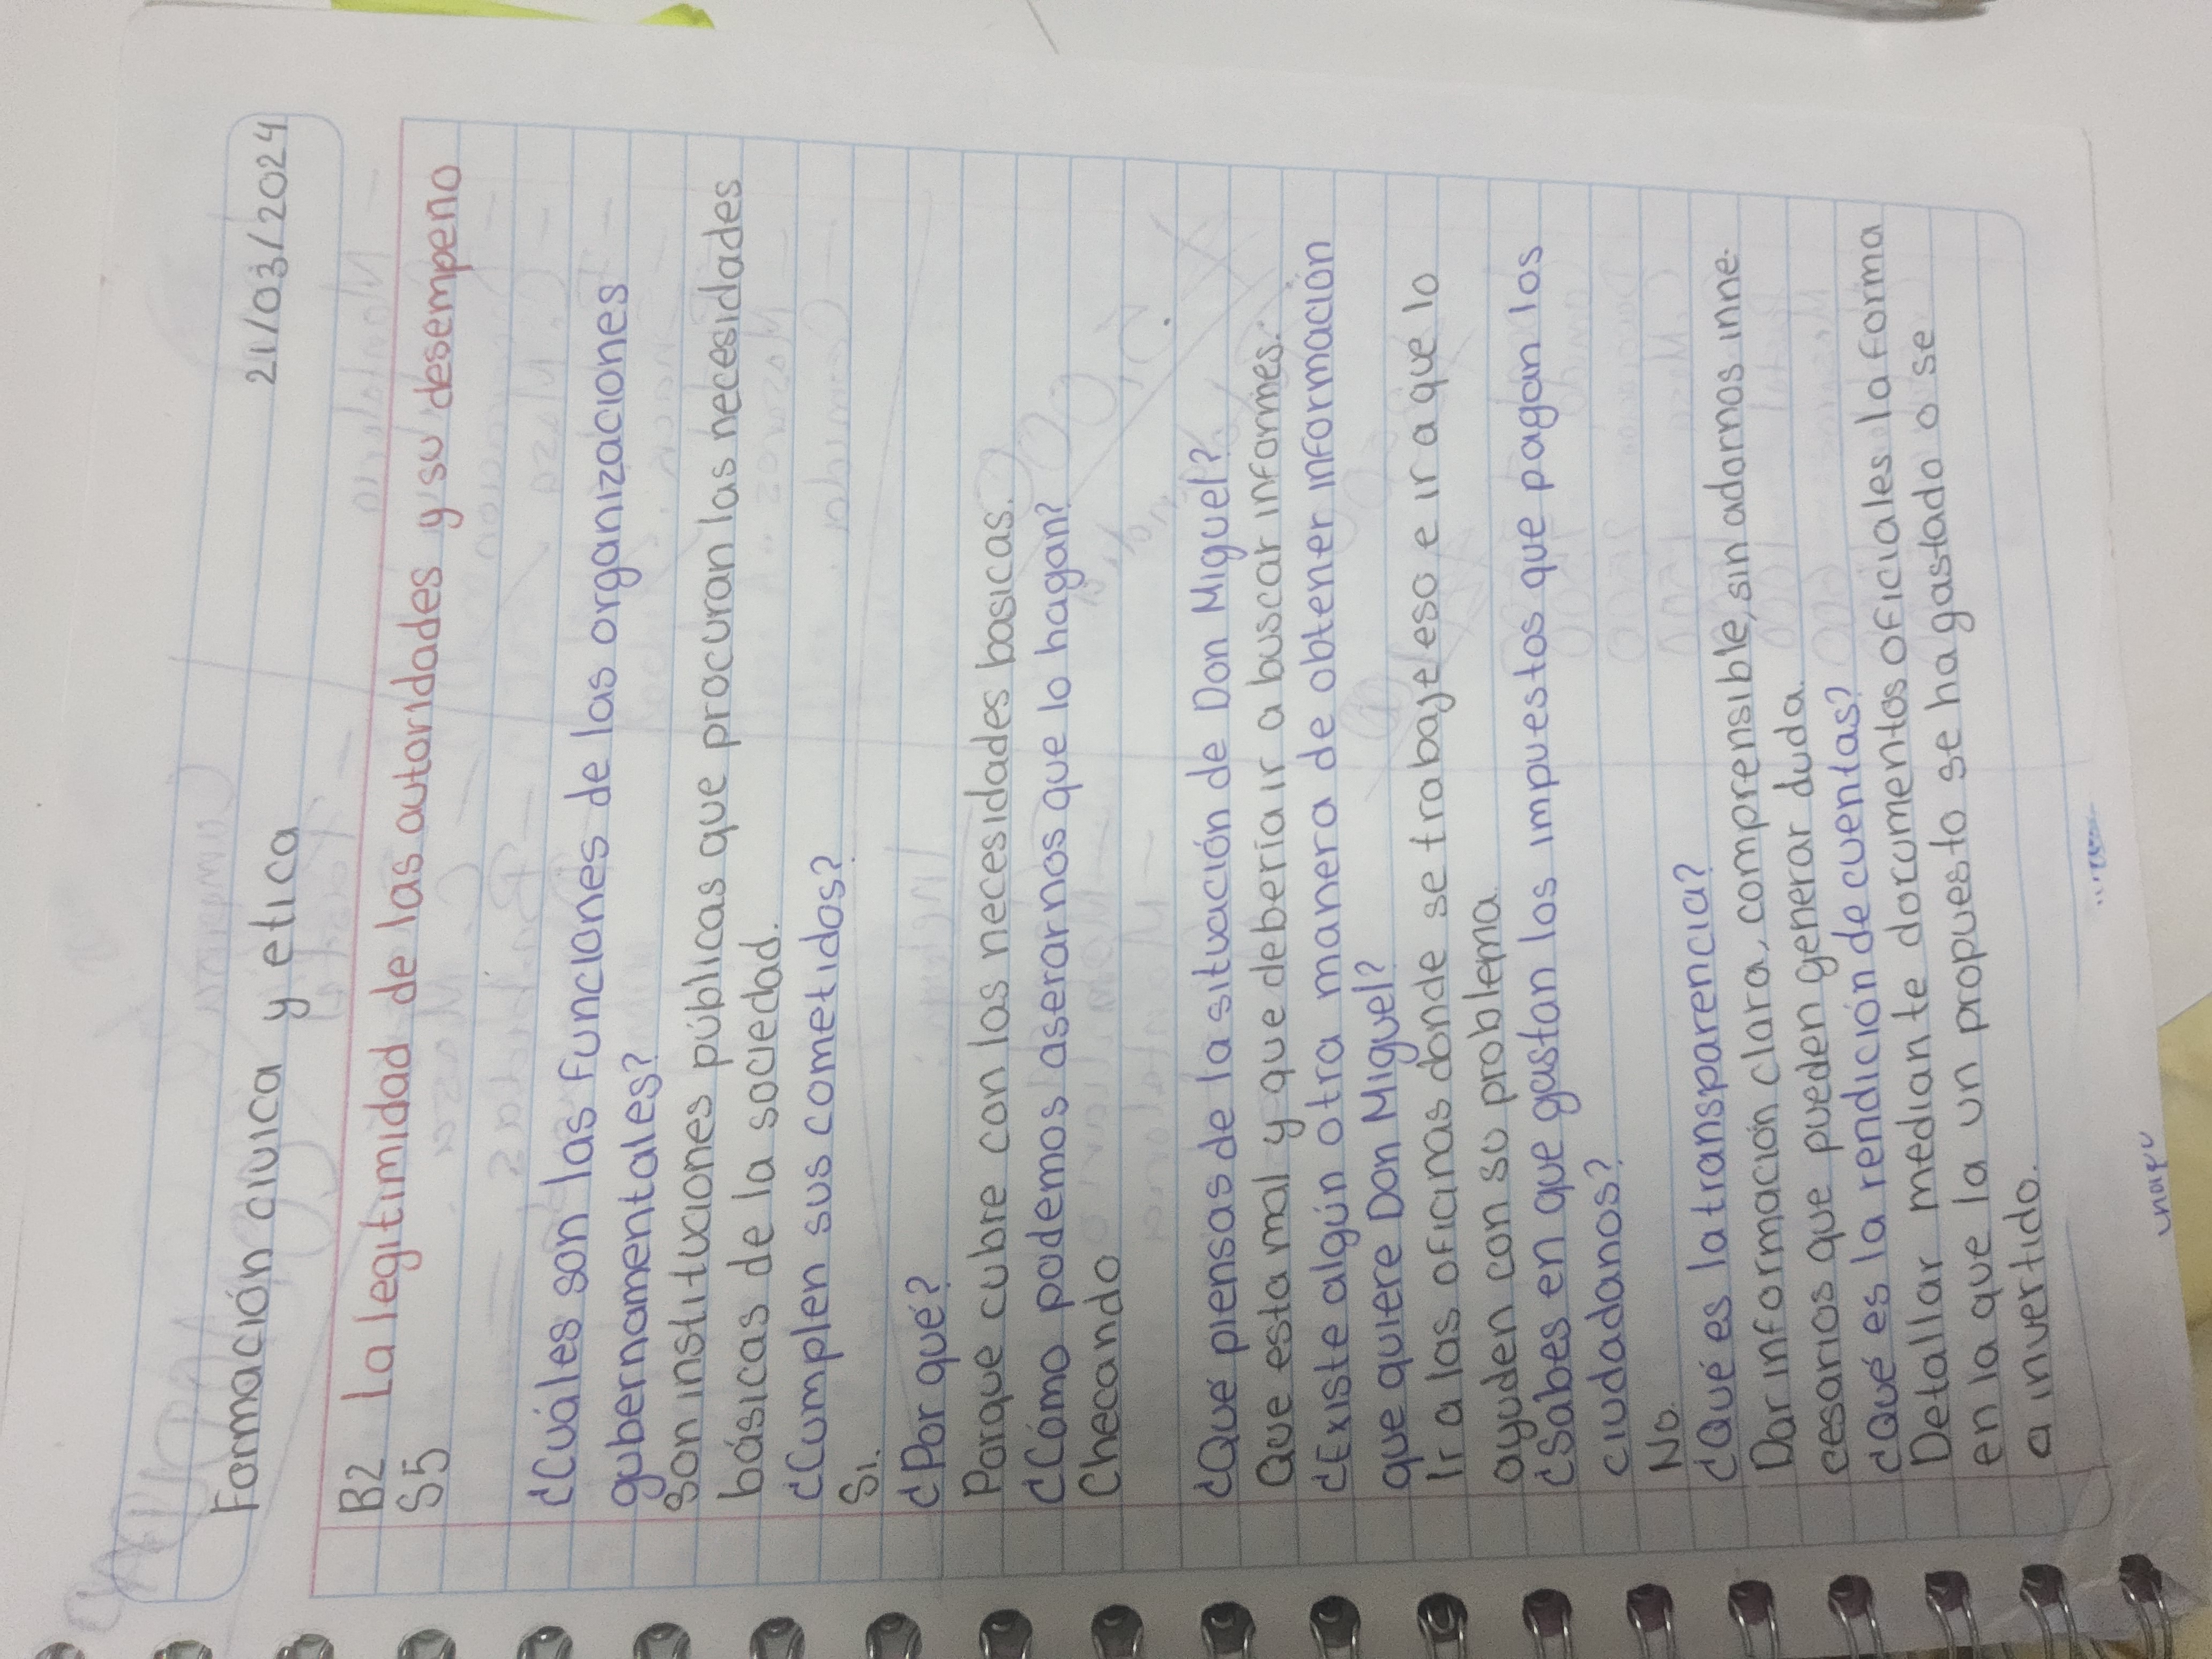 Formación civica y etica
21/03/2024
B2 La legitimidad de las autoridades y su desempeno
S5
¿Cuáles son las funciones de las organizaciones
gubernamentales?
Son instituciones públicas que procuran las necesidades
básicas de la sociedad.
¿Cumplen sus cometidos?
Si.
¿Por qué?
Porque cubre con las necesidades basicas.
¿Cómo podemos aserarnos que lo hagan?
Checando
¿Que piensas de la situación de Don Miguel?
Que esta mal y que debería ir a buscar informes.
¿Existe algún otra manera de obtener información
que quiere Don Miguel?
Ir a las oficinas donde se trabaje eso e ir a que lo
ayuden con su problema.
¿Sabes en que gastan los impuestos que pagan los
ciudadanos?
No.
¿Qué es la transparencia?
Dar información clara, comprensible, sin adornos inne-
cesarios que pueden generar duda.
¿Qué es la rendición de cuentas?
Detallar mediante documentos oficiales la forma
en la que la un propuesto se ha gastado o se
a invertido.